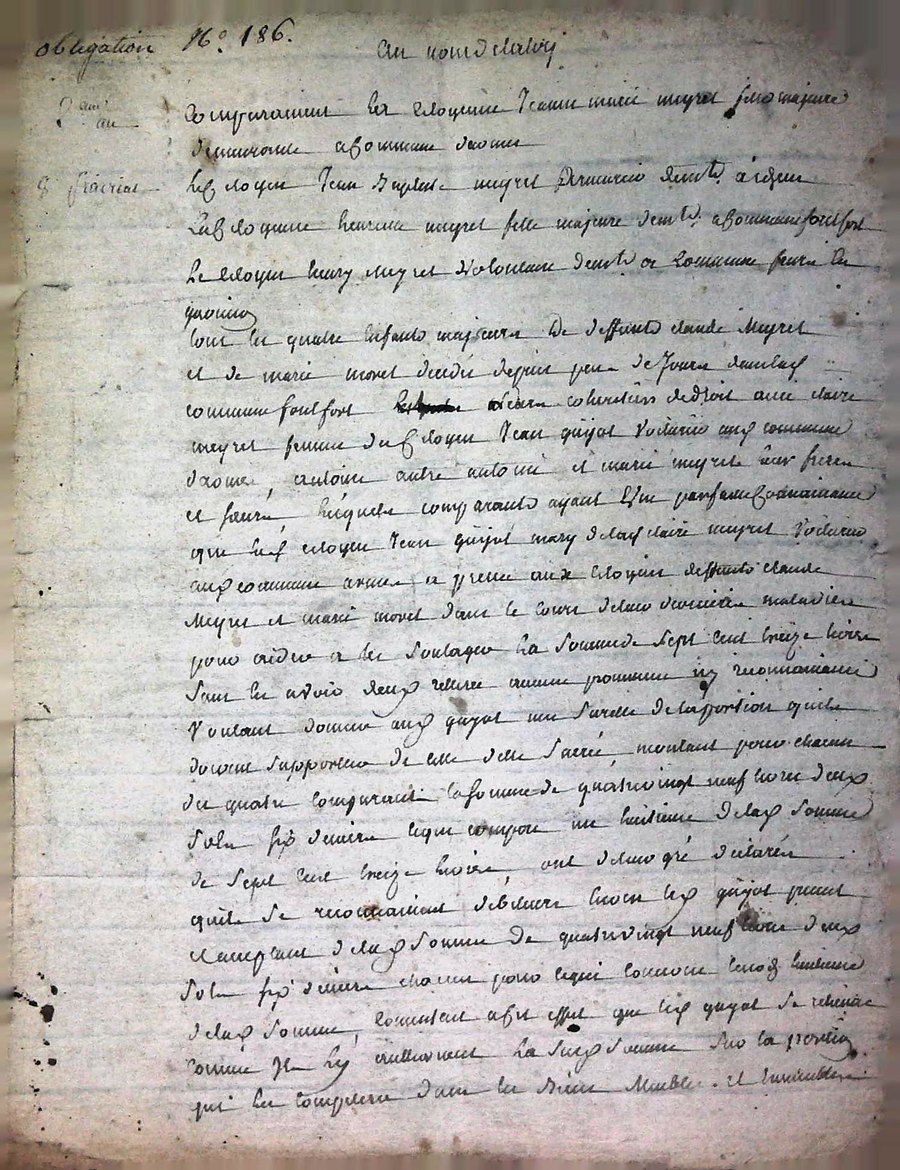 obligation N.° 186.
au nom de la loy
2 an
8 prairial
Comparaissent les citoyenne Jeanne marie meyret fille majeure
demeurante a commune
Le citoyen Jean Baptiste meyret demt. a
La citoyenne meyret fille majeure demt. a commune fontfort
Le citoyen henry meyret volontaire demt. a commune
tout les quatre enfants majeurs de deffunts claude Meyret
et de marie moret decedes depuis peu de Jours dans lad
commune fontfort coheritiers de droit avec claire
meyret femme du citoyen Jean guyot voiturier aud commune
antoine autre antoine et marie meyret leur freres
et soeurs, lesquels comparants ayant une parfaite connaissance
que led citoyen Jean guyot mary de lad claire meyret voiturier
aud commune avance et prete aux citoyens deffunts claude
Meyret et marie moret dans le cours de leur derniere maladies
pour aider a les soulager la somme de sept cent treize livres
sans en avoir d'eux retirée aucune promesse ny reconnaissance
voulant donner aud guyot une surette de la portion quils
doivent supporter de celle dette sacrée, montant pour chacun
des quatre comparants la somme de quatrevingt neuf livres deux
sols six deniers ce qui compose un huitieme de lad somme
de sept cent treize livres, ont de leur gré declarés
quils se reconnaissent debiteurs envers led guyot present
et acceptant de lad somme de quatrevingt neuf livres deux
sols six deniers chacun pour ce qui concerne huitieme
de lad somme, consentent a cet effet que led guyot se retienne
comme la sud somme sur la portion
qui les compete dans les Biens Meubles et immeubles